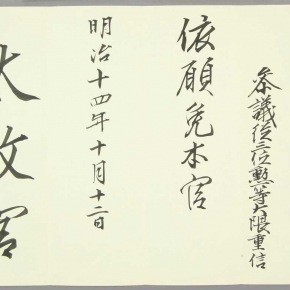 参議従三位勲一等大隈重信
依願免本官
明治十四年十月十二日
太政官